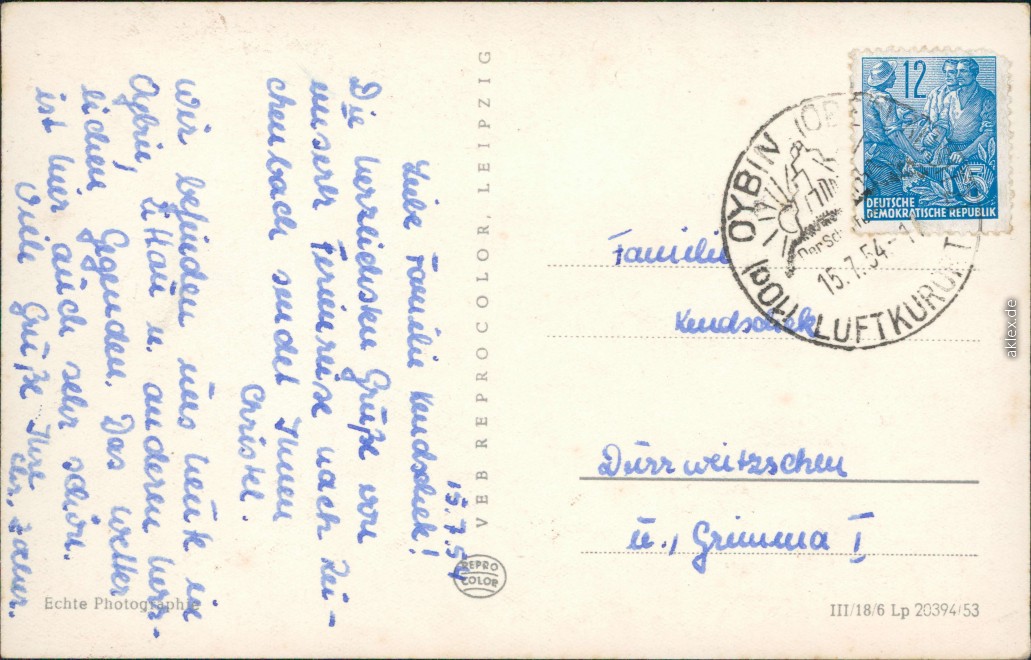 15.7.54
Liebe Familie Kendschek!
Die herzlichsten Grüße von
unserer Ferienreise nach Rei-
chenbach sendet Ihnen
Christel.
Wir befinden uns heute in
Oybin, Zittau u. anderen herr-
lichen Gegenden. Das Wetter
ist hier auch sehr schön.
Viele Grüße Ihre
Chr.
VEB REPROCOLOR, LEIPZIG
REPRO
COLOR
Echte Photographie
12
DEUTSCHE
DEMOKRATISCHE REPUBLIK
OYBIN
LUFTKURORT
15.7.54-1
Familie
Kendschek
Dürrweitzschen
ü., Grimma I
III/18/6 Lp 20394/53
aklex.de